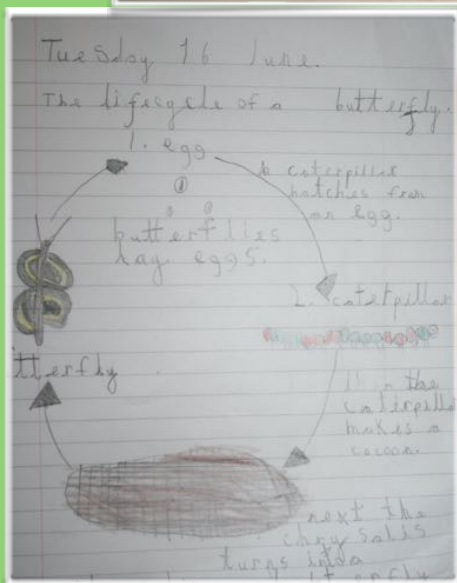 Tuesday 16 June.
The lifecycle of a butterfly.
1. egg
a caterpillar
hatches from
an egg.
butterflies
lay eggs.
2. caterpillar
the
caterpilla
makes a
cocoon.
tterfly
next the
chrysalis
turns into